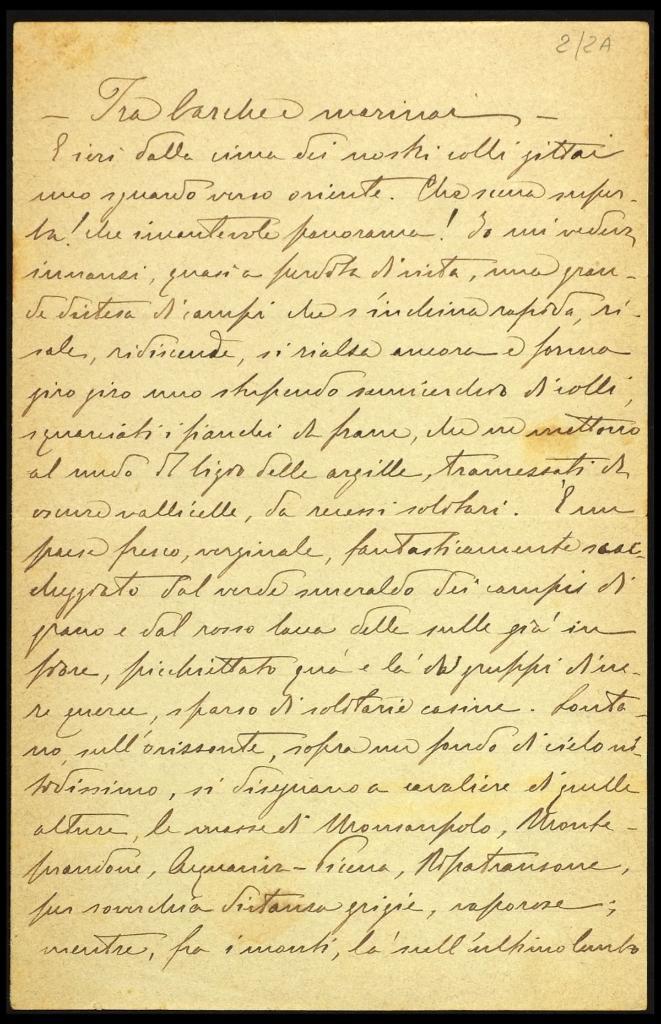 2/2A
— Tra barche e marinai —
E ieri dalla cima dei nostri colli gittai
uno sguardo verso oriente. Che scena super-
ba! che incantevole panorama! Io mi vedeva
innanzi, quasi a perdita di vista, una gran-
de distesa di campi che s'inchina rapida, ri-
sale, ridiscende, si rialza ancora e forma
giro giro uno stupendo semicerchio di colli,
squarciati i fianchi da frane, che ne mettono
al nudo il bigio delle argille, tramezzati da
oscure vallicelle, da recessi solitari. È un
paese fresco, verginale, fantasticamente scac-
cheggiato dal verde smeraldo dei campi di
grano e dal rosso lacca delle sulle già in
fiore, picchiettato quà e là da gruppi di ne-
re querce, sparso di solitarie casine. Lonta-
no, sull'orizzonte, sopra un fondo di cielo ni-
tidissimo, si disegnano a cavaliere di quelle
alture, le masse di Monsanpolo, Monte-
prandone, Acquaviva-Picena, Ripatransone,
per soverchia distanza grigie, vaporose;
mentre, fra i monti, là sull'ultimo lembo